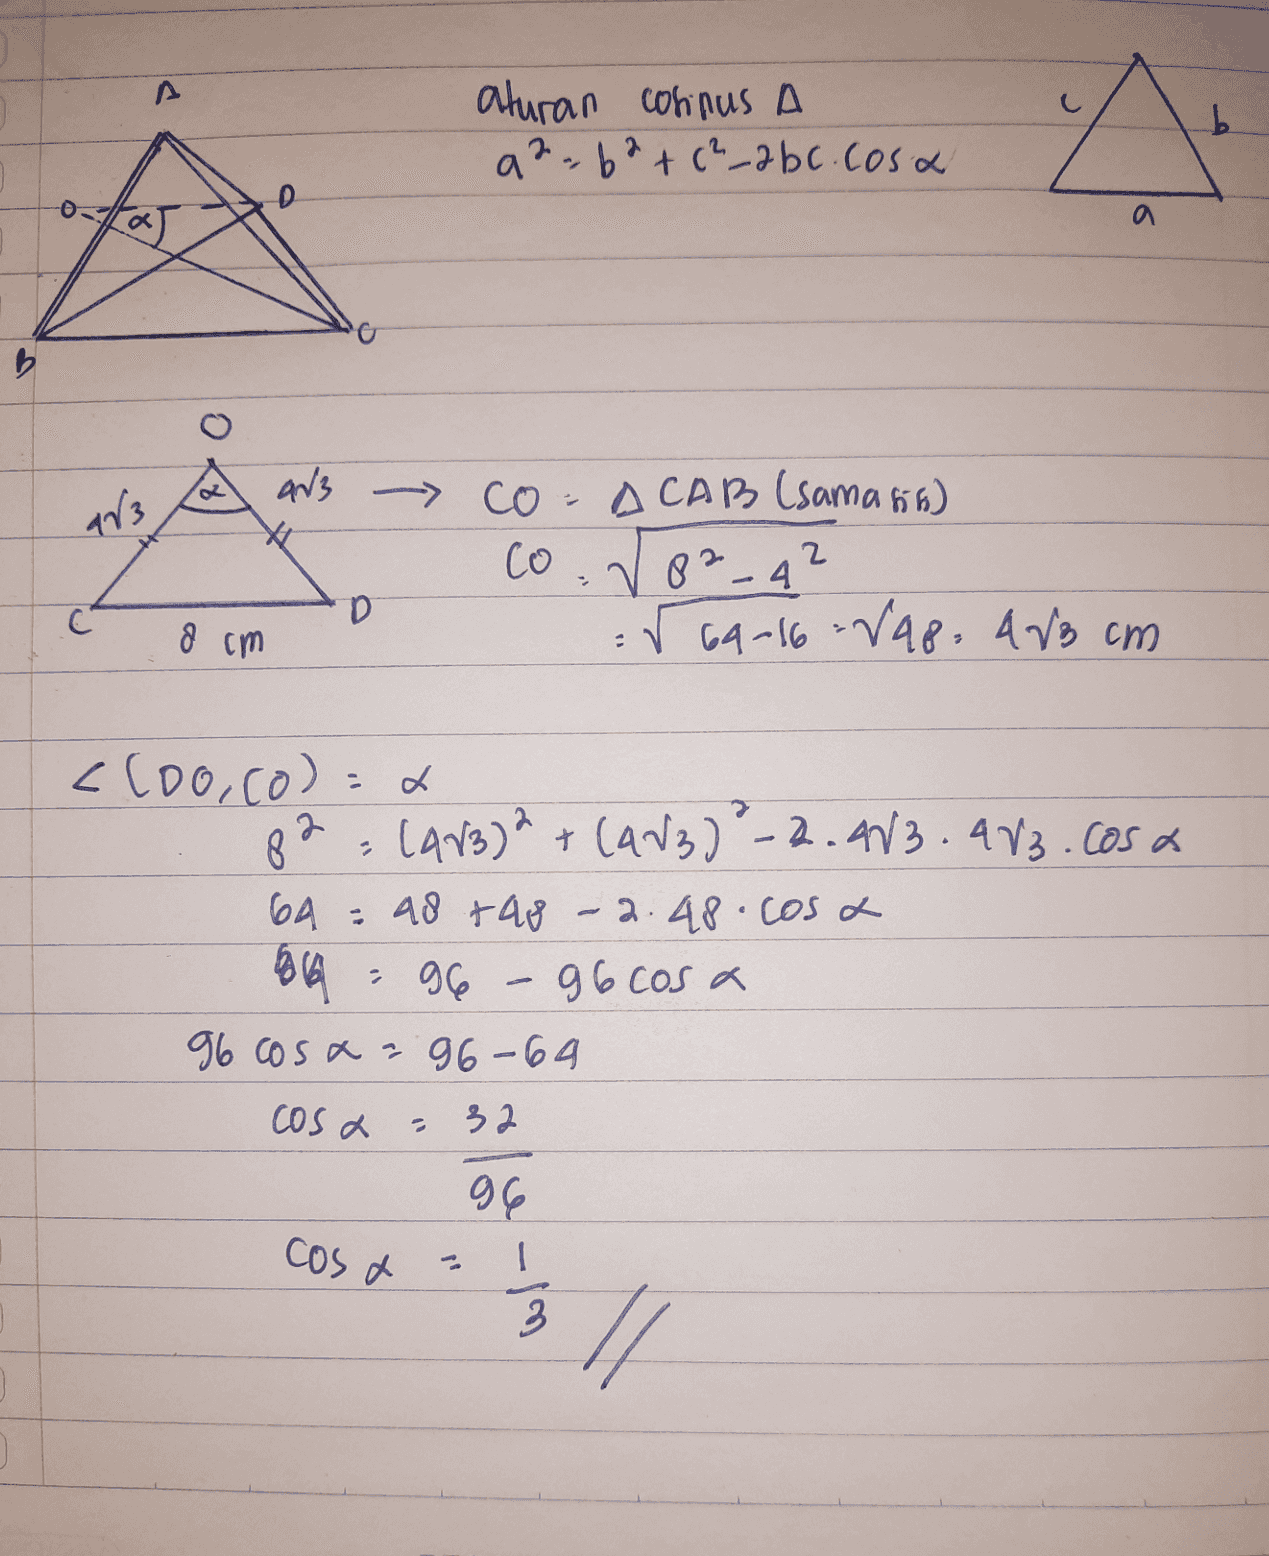 A
O
α
D
B
C
aturan cosinus Δ
a² = b² + c² - 2bc . cos α
c
b
a
O
α
4√3
4√3
C
D
8 cm
→ CO = Δ CAB (sama sisi)
CO = √8² - 4²
= √64-16 = √48 = 4√3 cm
< (DO, CO) = α
8² = (4√3)² + (4√3)² - 2 . 4√3 . 4√3 . cos α
64 = 48 + 48 - 2 . 48 . cos α
64 = 96 - 96 cos α
96 cos α = 96 - 64
cos α = 32
96
cos α = 1
3 //